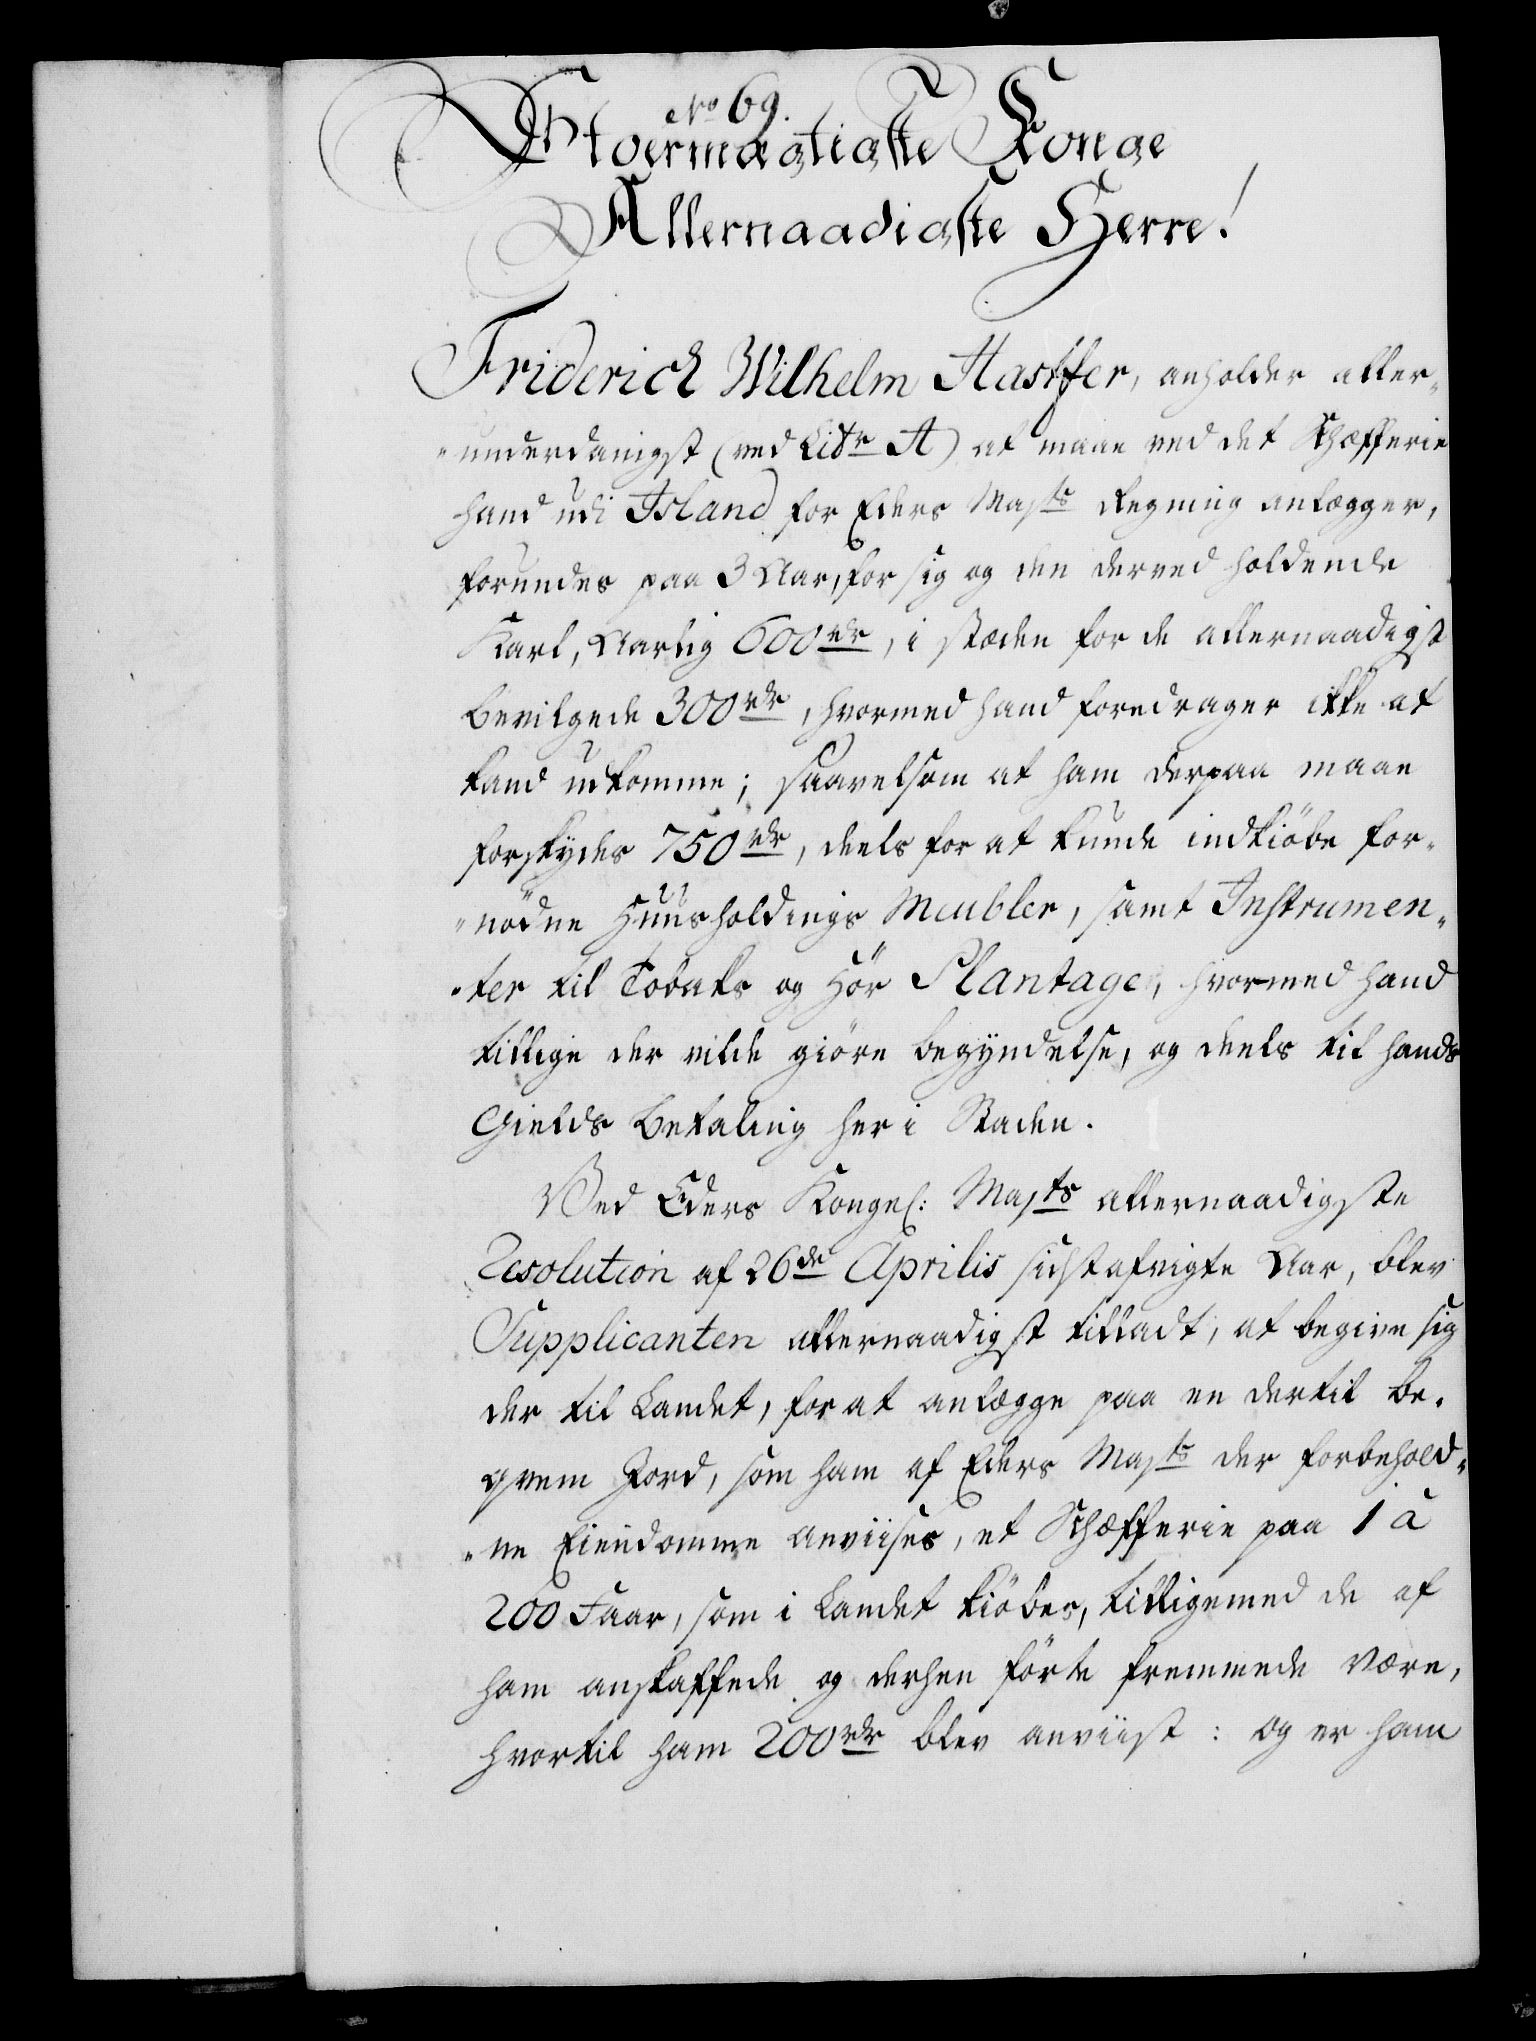 No 69.
Stoermægtigste Konge
Allernaadigste Herre!
Friderich Wilhelm Hastfer, anholder aller„
„underdanigst (ved Litr A) at maae ved det Schæfferie
hand udi Island for Eders Majts Regning anlægger,
forundes paa 3 Aar, for sig og den derved holdende
Karl, Aarlig 600 rdr, i stæden for de allernaadigst
bevilgede 300 rdr, hvormed hand foredrager ikke at
kand udkomme; saavelsom at ham derpaa maae
forskydes 750 rdr, deels for at kunde indkiöbe for„
„nödne Huusholdings Meubler, samt Instrumen„
„ter til Tobaks og Hör Plantage, hvormed hand
tillige der vilde giöre begyndelse, og deels til hands
Gields Betaling her i Staden.
Ved Eders Kongel: Majts allernaadigste
Resolution af 26de Aprilis sidstafvigte Aar, blev
Supplicanten allernaadigst tilladt, at begive sig
der til Landet, for at anlægge paa en dertil be„
qvem Jord, som ham af Eders Majts der forbehold„
„ne Eiendomme anviises, et Schæfferie paa 1 à
200 Faar, som i Landet kiöbes, tilligemed de af
ham anskaffede og derhen förte fremmede Være,
hvortil ham 200 rdr blev anviist: og er ham